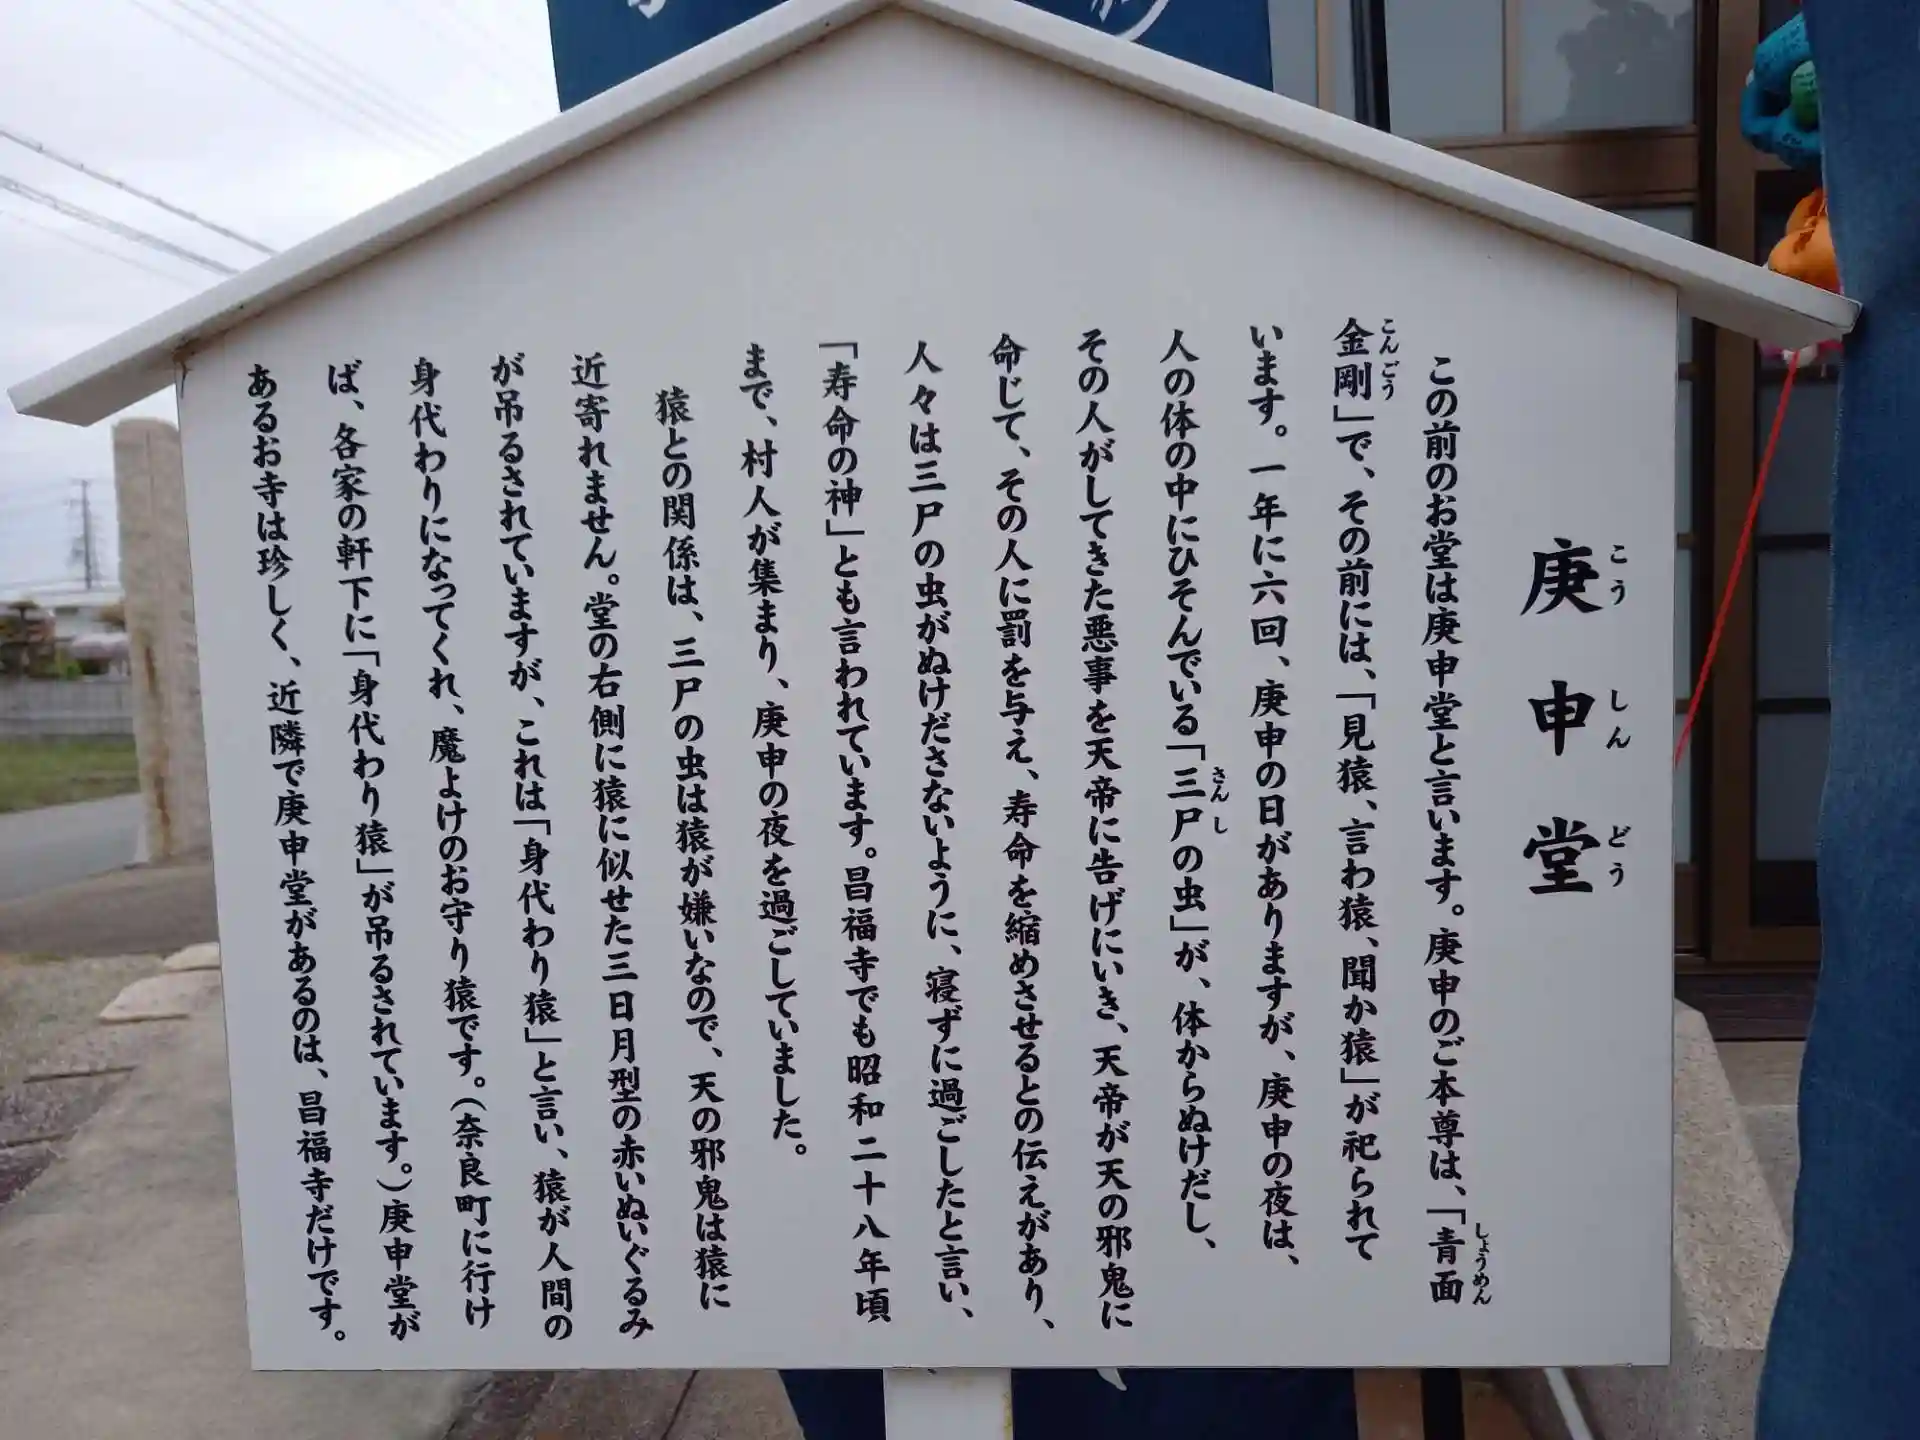 庚申堂
こうしんどう
この前のお堂は庚申堂と言います。庚申のご本尊は、「青面
しょうめん
金剛」で、その前には、「見猿、言わ猿、聞か猿」が祀られて
こんごう
います。一年に六回、庚申の日がありますが、庚申の夜は、
人の体の中にひそんでいる「三尸の虫」が、体からぬけだし、
さんし
その人がしてきた悪事を天帝に告げにいき、天帝が天の邪鬼に
命じて、その人に罰を与え、寿命を縮めさせるとの伝えがあり、
人々は三尸の虫がぬけださないように、寝ずに過ごしたと言い、
「寿命の神」とも言われています。昌福寺でも昭和二十八年頃
まで、村人が集まり、庚申の夜を過ごしていました。
猿との関係は、三尸の虫は猿が嫌いなので、天の邪鬼は猿に
近寄れません。堂の右側に猿に似せた三日月型の赤いぬいぐるみ
が吊るされていますが、これは「身代わり猿」と言い、猿が人間の
身代わりになってくれ、魔よけのお守り猿です。（奈良町に行け
ば、各家の軒下に「身代わり猿」が吊るされています。）庚申堂が
あるお寺は珍しく、近隣で庚申堂があるのは、昌福寺だけです。